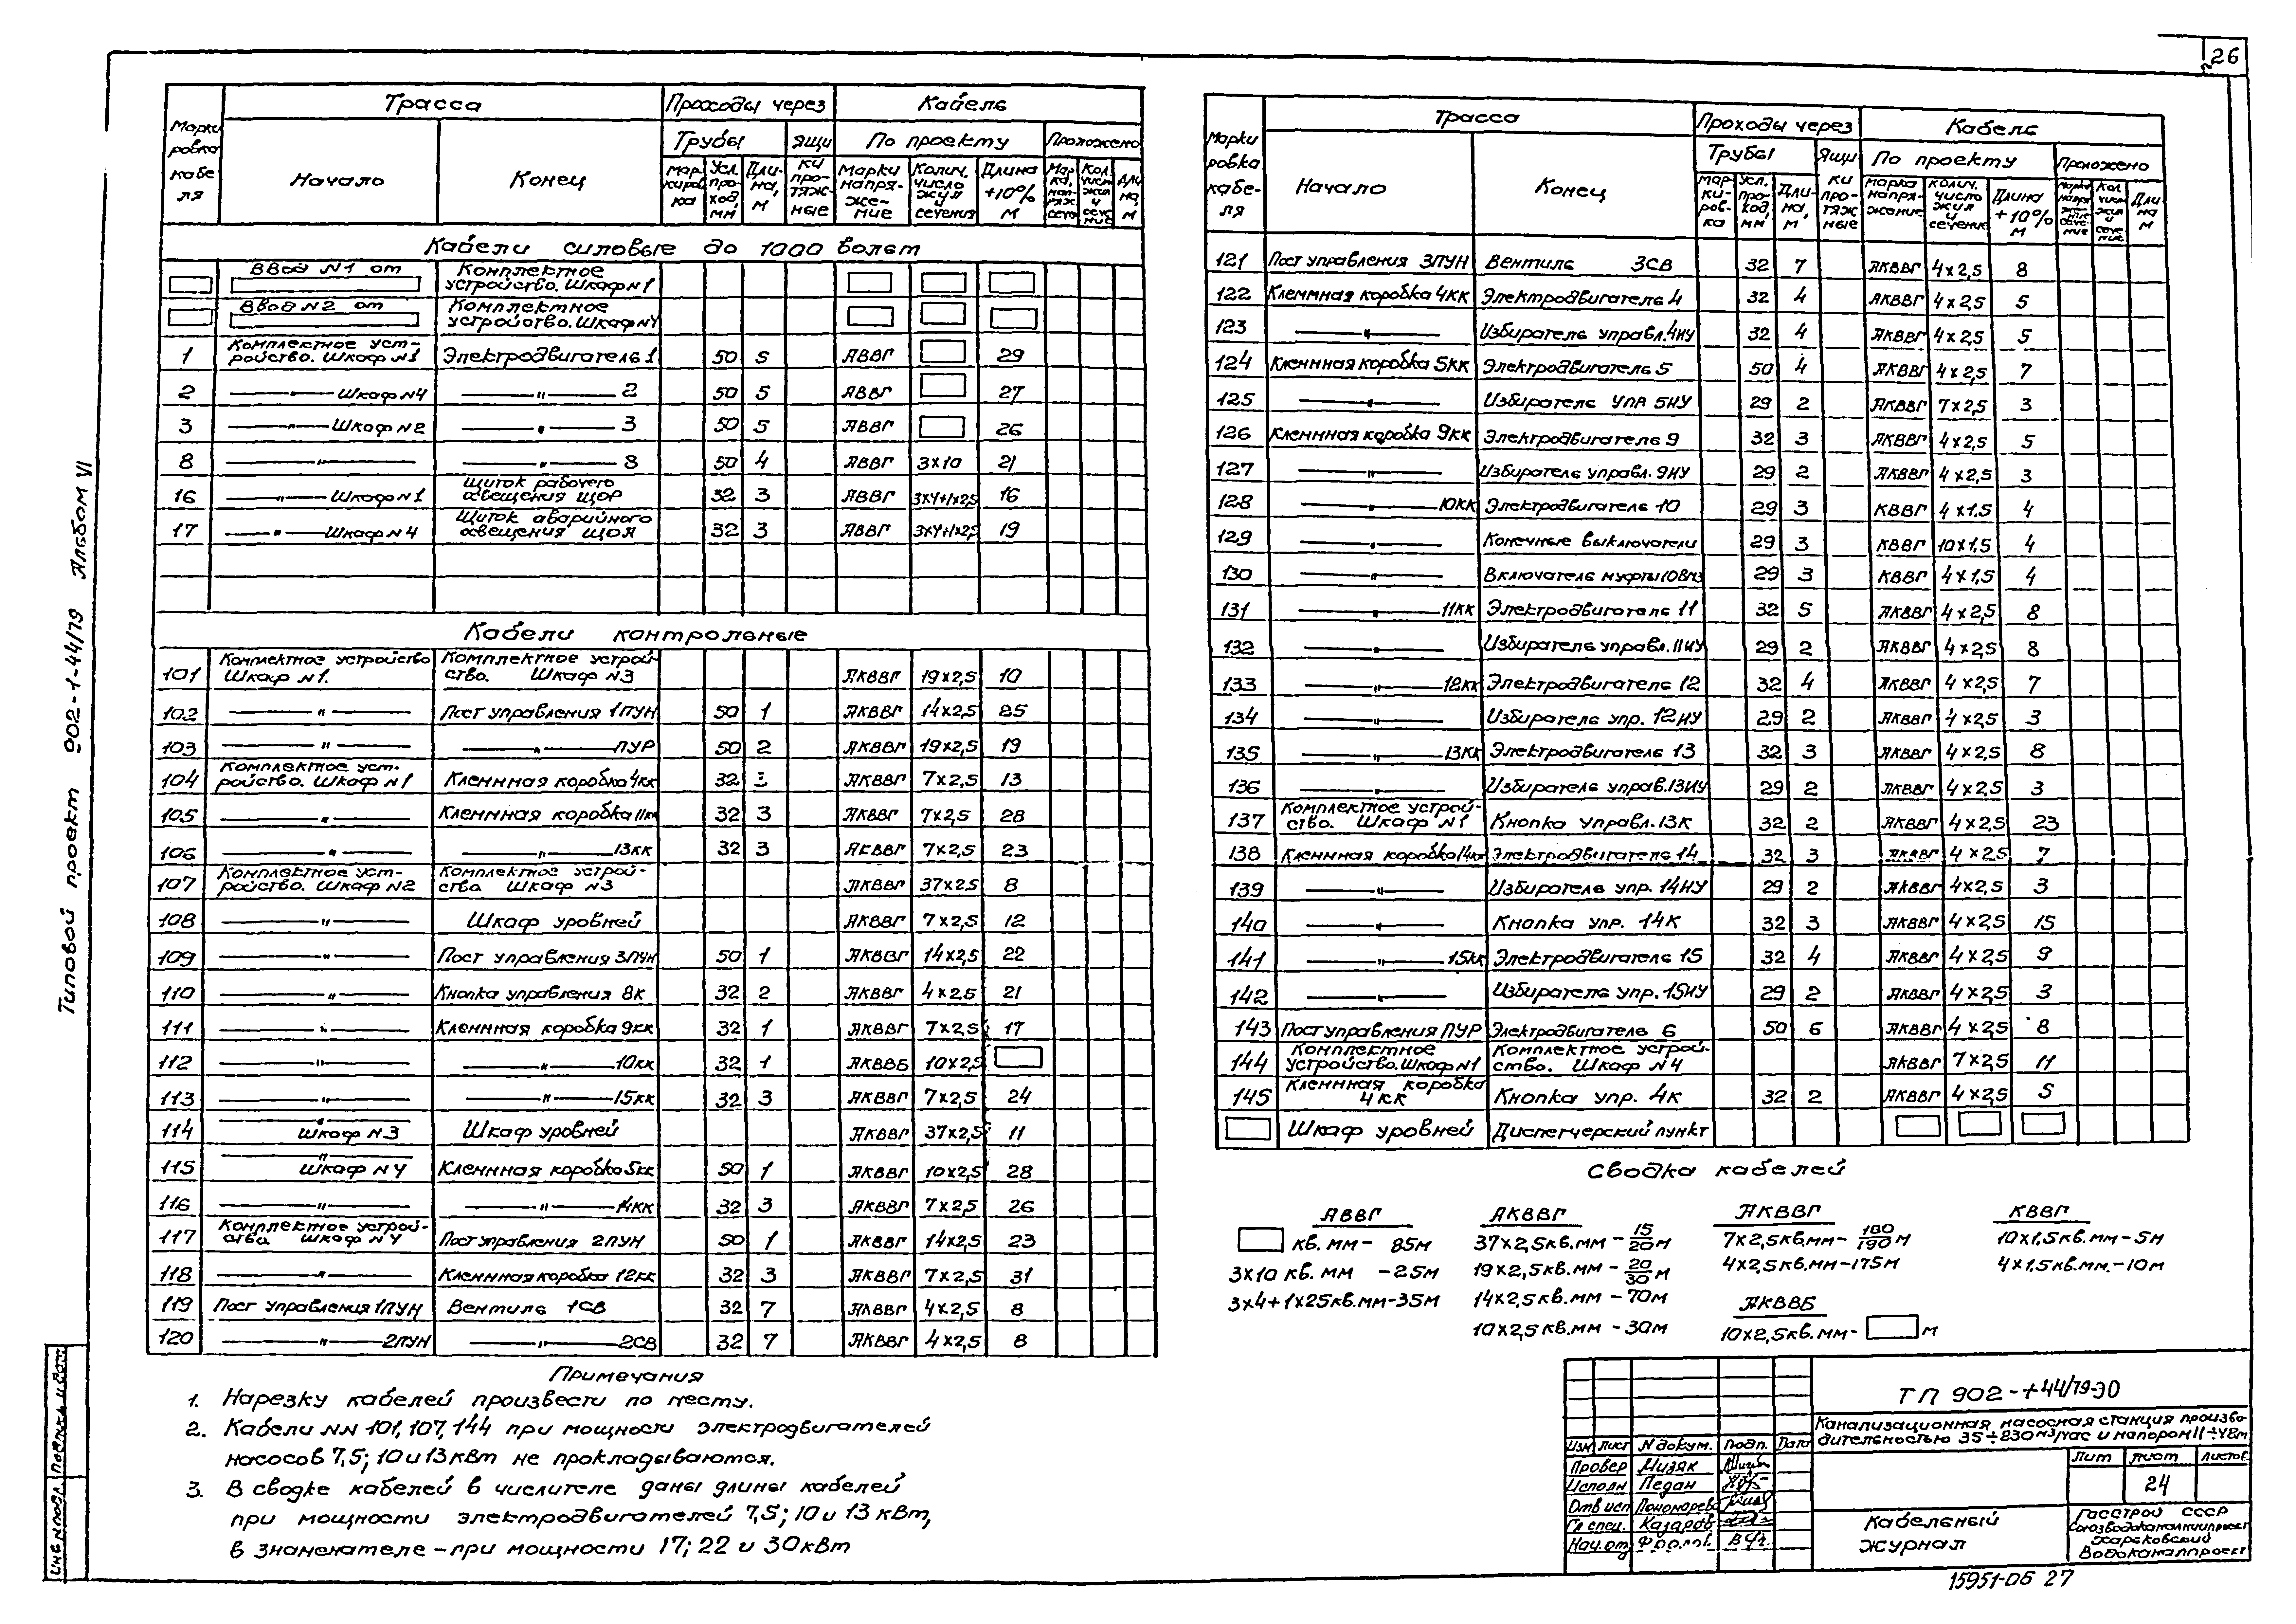 26
Типовой проект 902-1-44/79 Альбом VI
Марки ровка кабе ля
Трасса
Проходы через
Кабель
Трубы
Ящи ки про- тяж- ные
По проекту
Проложено
Начало
Конец
Мар- киров ка
Усл. про- ход, мм
Дли- на, м
Марки напря- же- ние
Колич. число жил и сечения
Длина +10% м
Кабели силовые до 1000 вольт
Ввод N1 от Комплектное устройство. Шкаф N1
Ввод N2 от Комплектное устройство. Шкаф N4
1 Комплектное уст- ройство. Шкаф N1 Электродвигатель 1 50 5 АВВГ 29
2 —"— Шкаф N4 —"— 2 50 5 АВВГ 27
3 —"— Шкаф N2 —"— 3 50 5 АВВГ 26
8 —"— —"— 8 50 4 АВВГ 3х10 21
16 —"— Шкаф N1 Щиток рабочего освещения ЩОР 32 3 АВВГ 3х4+1х2,5 16
17 —"— Шкаф N4 Щиток аварийного освещения ЩОА 32 3 АВВГ 3х4+1х2,5 19
Кабели контрольные
101 Комплектное устройство Шкаф N1. Комплектное устрой- ство. Шкаф N3 АКВВГ 19х2,5 10
102 —"— Пост управления 1ПУН 50 1 АКВВГ 14х2,5 25
103 —"— —"— ПУР 50 2 АКВВГ 19х2,5 19
104 Комплектное уст- ройство. Шкаф N1 Клеммная коробка 4кк 32 АКВВГ 7х2,5 13
105 —"— Клеммная коробка 11кк 32 3 АКВВГ 7х2,5 28
106 —"— —"— 13кк 32 3 АКВВГ 7х2,5 23
107 Комплектное уст- ройство. Шкаф N2 Комплектное устрой- ство Шкаф N3 АКВВГ 37х2,5 8
108 —"— Шкаф уровней АКВВГ 7х2,5 12
109 —"— Пост управления 3ПУН 50 1 АКВВГ 14х2,5 22
110 —"— Кнопка управления 8к 32 2 АКВВГ 4х2,5 21
111 —"— Клеммная коробка 9кк 32 1 АКВВГ 7х2,5 17
112 —"— —"— 10кк 32 1 АКВВБ 10х2,5
113 —"— —"— 15кк 32 3 АКВВГ 7х2,5 24
114 —"— Шкаф N3 Шкаф уровней АКВВГ 37х2,5 11
115 —"— Шкаф N4 Клеммная коробка 5кк 50 1 АКВВГ 10х2,5 28
116 —"— —"— 14кк 32 3 АКВВГ 7х2,5 26
117 Комплектное устрой- ства Шкаф N4 Пост управления 2ПУН 50 1 АКВВГ 14х2,5 23
118 —"— Клеммная коробка 12кк 32 3 АКВВГ 7х2,5 31
119 Пост управления 1ПУН Вентиль 1СВ 32 7 АКВВГ 4х2,5 8
120 —"— 2ПУН —"— 2СВ 32 7 АКВВГ 4х2,5 8
Примечания
1. Нарезку кабелей произвести по месту.
2. Кабели NN 101, 107, 144 при мощности электродвигателей
насосов 7,5; 10 и 13 кВт не прокладываются.
3. В сводке кабелей в числителе даны длины кабелей
при мощности электродвигателей 7,5; 10 и 13 кВт,
в знаменателе – при мощности 17; 22 и 30 кВт
Марки ровка кабе- ля
Трасса
Проходы через
Кабель
Трубы
Ящи ки про- тяж ные
По проекту
Проложено
Начало
Конец
Мар- ки- ров- ка
Усл. про- ход, мм
Дли- на, м
Марка напря- жение
Колич. число жил и сечение
Длина +10% м
121 Пост управления 3ПУН Вентиль 3СВ 32 7 АКВВГ 4х2,5 8
122 Клеммная коробка 4кк Электродвигатель 4 32 4 АКВВГ 4х2,5 5
123 —"— Избиратель управл. 4ИУ 32 4 АКВВГ 4х2,5 5
124 Клеммная коробка 5кк Электродвигатель 5 50 4 АКВВГ 4х2,5 7
125 —"— Избиратель упр. 5ИУ 29 2 АКВВГ 7х2,5 3
126 Клеммная коробка 9кк Электродвигатель 9 32 3 АКВВГ 4х2,5 5
127 —"— Избиратель управл. 9ИУ 29 2 АКВВГ 4х2,5 3
128 —"— 10кк Электродвигатель 10 29 3 КВВГ 4х1,5 4
129 —"— Конечные выключатели 29 3 КВВГ 10х1,5 4
130 —"— Включатель муфты 10ВМЗ 29 3 КВВГ 4х1,5 4
131 —"— 11кк Электродвигатель 11 32 5 АКВВГ 4х2,5 8
132 —"— Избиратель управл. 11ИУ 29 2 АКВВГ 4х2,5 8
133 —"— 12кк Электродвигатель 12 32 4 АКВВГ 4х2,5 7
134 —"— Избиратель упр. 12ИУ 29 2 АКВВГ 4х2,5 3
135 —"— 13кк Электродвигатель 13 32 3 АКВВГ 4х2,5 8
136 —"— Избиратель управ. 13ИУ 29 2 АКВВГ 4х2,5 3
137 Комплектное устрой- ство. Шкаф N1 Кнопка управл. 13к 32 2 АКВВГ 4х2,5 23
138 Клеммная коробка 14кк Электродвигатель 14 32 3 АКВВГ 4х2,5 7
139 —"— Избиратель упр. 14ИУ 29 2 АКВВГ 4х2,5 3
140 —"— Кнопка упр. 14к 32 3 АКВВГ 4х2,5 15
141 —"— 15кк Электродвигатель 15 32 4 АКВВГ 4х2,5 9
142 —"— Избиратель упр. 15ИУ 29 2 АКВВГ 4х2,5 3
143 Пост управления ПУР Электродвигатель 6 50 6 АКВВГ 4х2,5 8
144 Комплектное устройство. Шкаф N1 Комплектное устрой- ство. Шкаф N4 АКВВГ 7х2,5 11
145 Клеммная коробка 4кк Кнопка упр. 4к 32 2 АКВВГ 4х2,5 5
Шкаф уровней Диспетчерский пункт
Сводка кабелей
АВВГ
кв. мм – 85м
3х10 кв. мм – 25м
3х4+1х25кв.мм–35м
АКВВГ
37х2,5кв.мм – 15/20 м
19х2,5кв.мм – 20/30 м
14х2,5кв.мм – 70м
10х2,5кв.мм – 30м
АКВВГ
7х2,5кв.мм – 180/190 м
4х2,5кв.мм – 175м
АКВВБ
10х2,5кв.мм – м
КВВГ
10х1,5кв.мм – 5м
4х1,5кв.мм. – 10м
ТП 902-1-44/79-ЭО
Канализационная насосная станция произво-
дительностью 35÷230 м³/час и напором 11÷48м
Изм Лист N докум. Подп. Дата
Провер Мизяк
Исполн Педан
Отв исп Пономарева
Гл спец. Казаров
Нач. отд
Лит Лист Листов
24
Кабельный
журнал
Госстрой СССР
Союзводоканалниипроект
Харьковский
Водоканалпроект
15951-06 27
Инв N подл. Подпись и дата